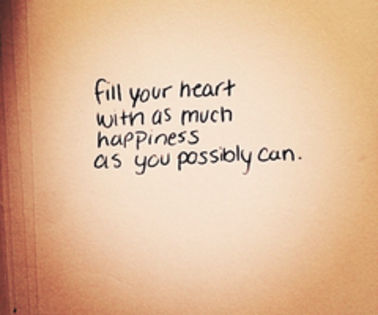 fill your heart
with as much
happiness
as you possibly can.